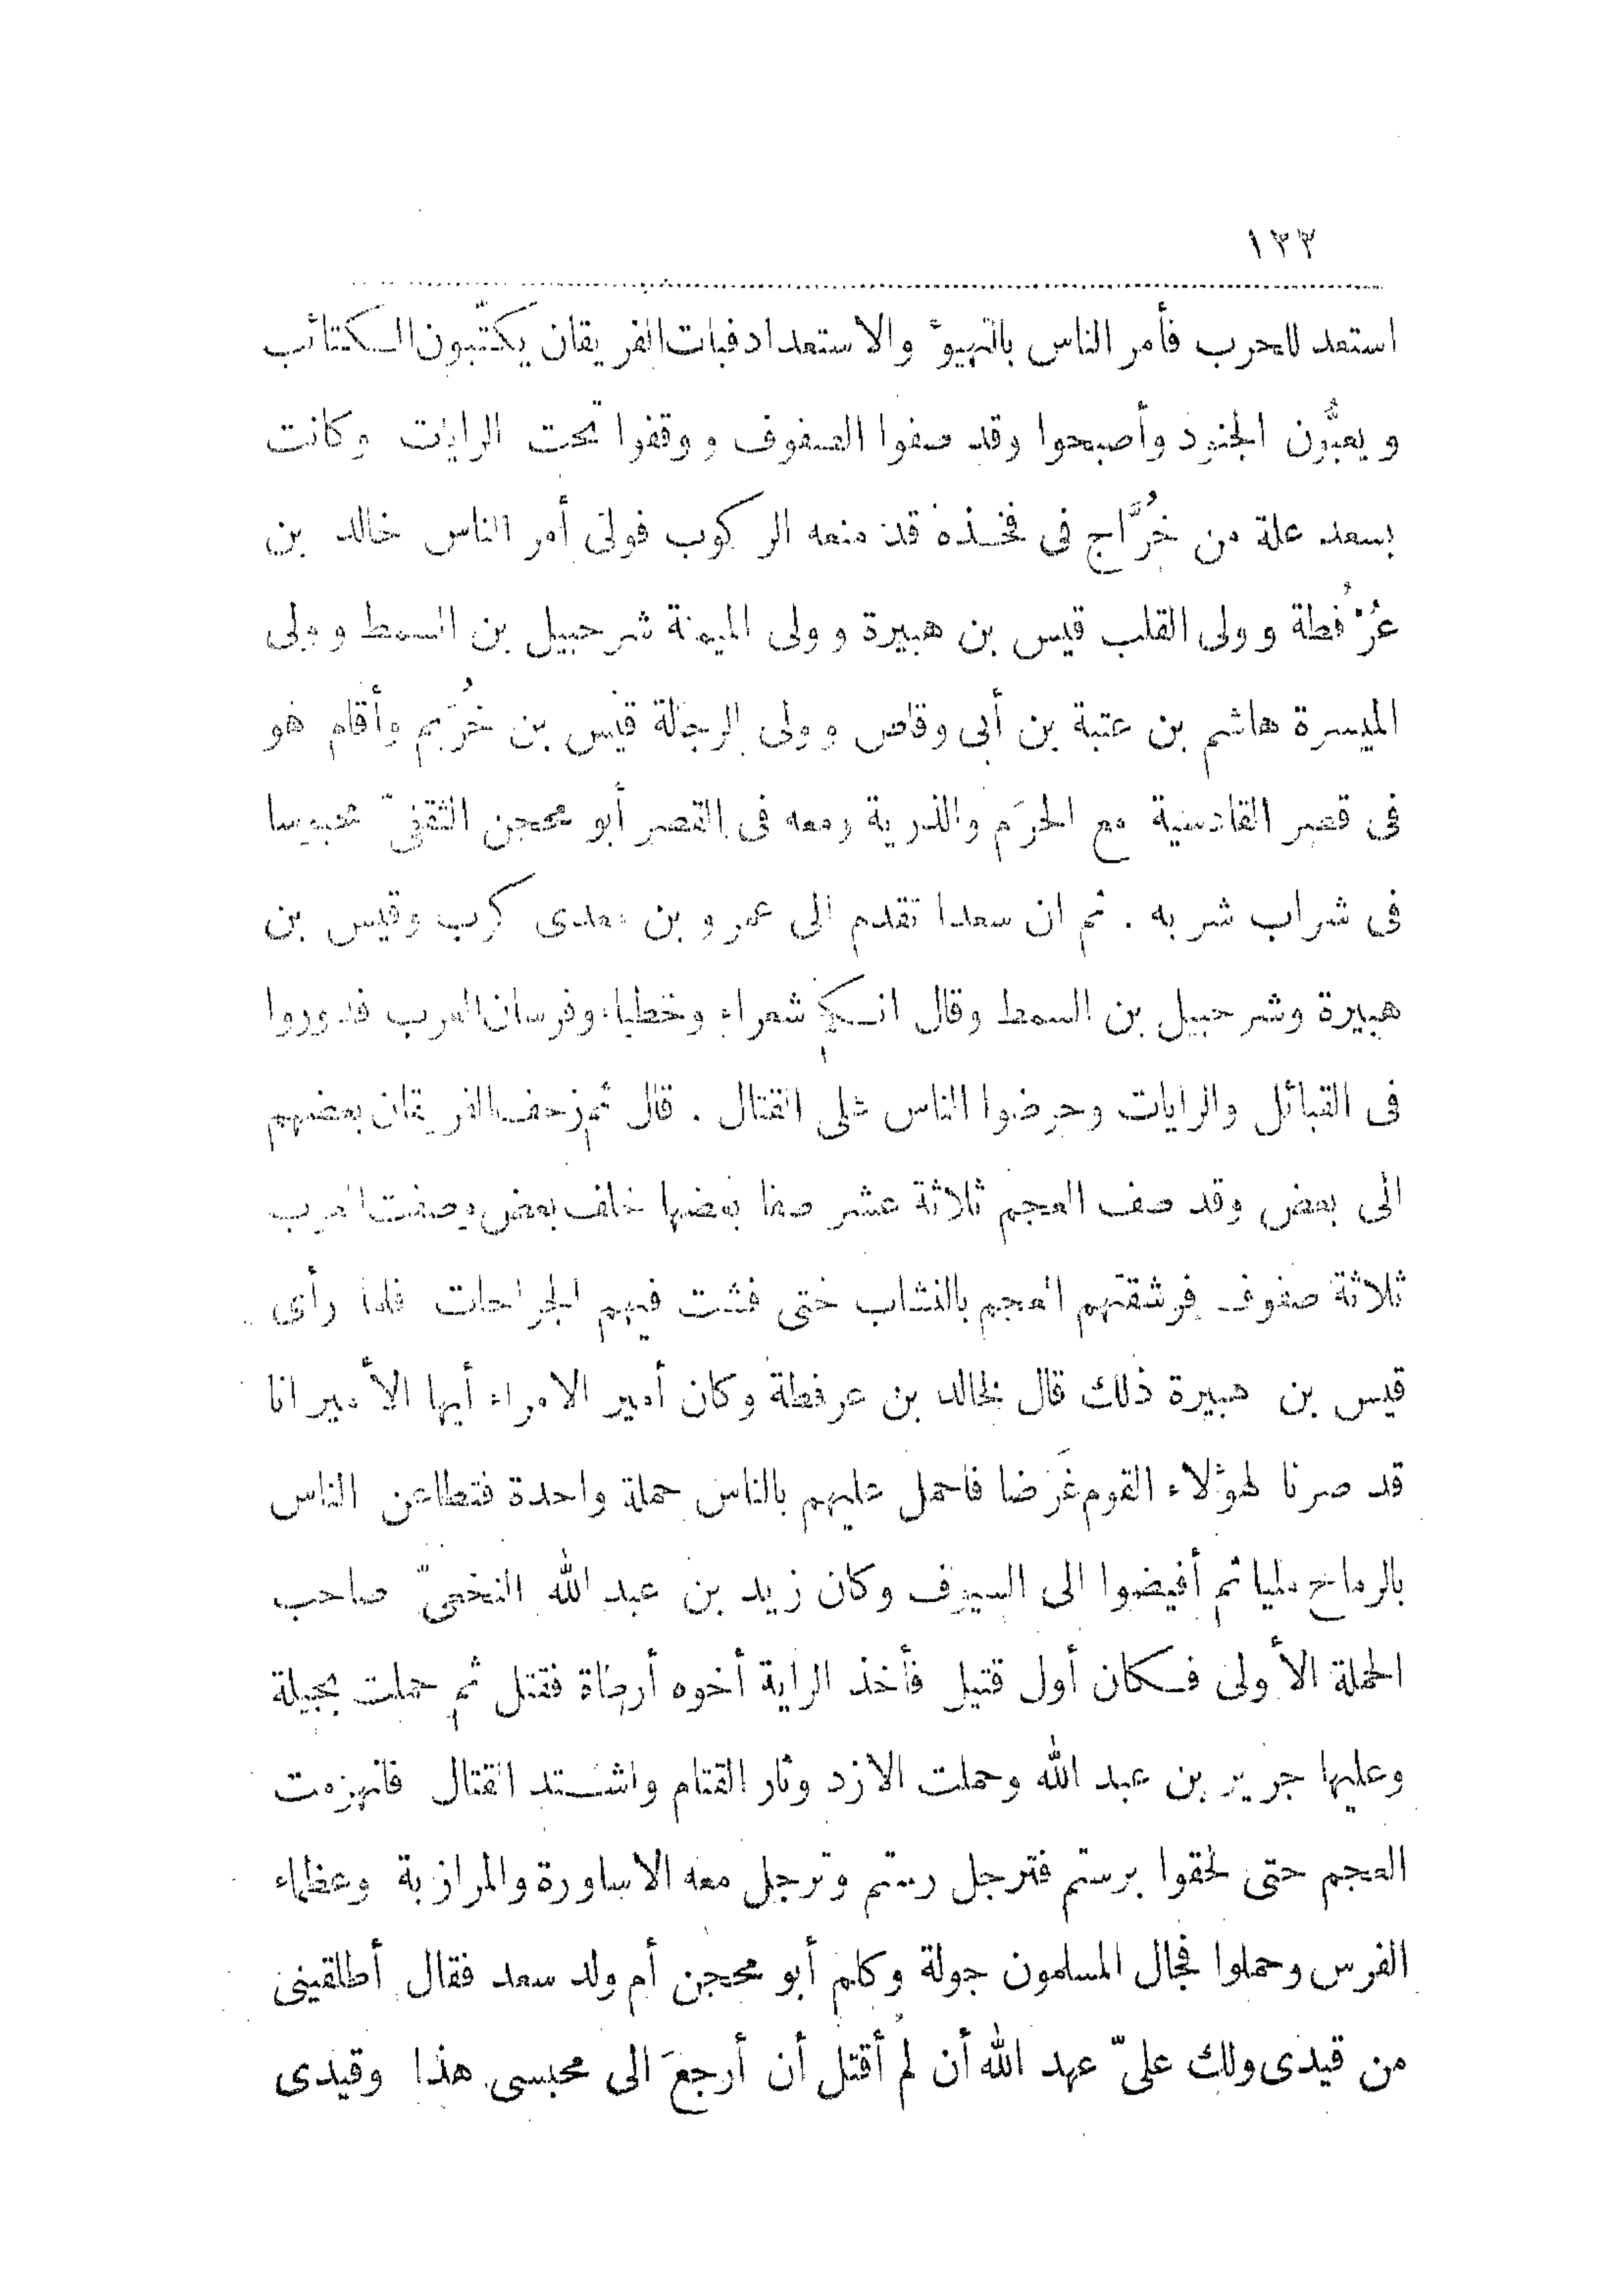 ١٣٣
استعد للحرب فأمر الناس بالتهيؤ والاستعداد فبات الفريقان يكتّبون الكتائب
ويعبُّون الجنود وأصبحوا وقد صفوا الصفوف ووقفوا تحت الرايات وكانت
بسعد علة من خُرَّاج فى فخذه قد منعه الركوب فولى أمر الناس خالد بن
عُرْفُطة وولى القلب قيس بن هبيرة وولى الميمنة شرحبيل بن السمط وولى
الميسرة هاشم بن عتبة بن أبى وقاص وولى الرجالة قيس بن خُرَيم وأقام هو
فى قصر القادسية مع الحرَم والذرية ومعه فى القصر أبو محجن الثقفىّ محبوسا
فى شراب شربه . ثم ان سعدا تقدم الى عمرو بن معدى كرب وقيس بن
هبيرة وشرحبيل بن السمط وقال انكم شعراء وخطباء وفرسان العرب فدوروا
فى القبائل والرايات وحرضوا الناس على القتال . قال ثم زحف الفريقان بعضهم
الى بعض وقد صف العجم ثلاثة عشر صفا بعضها خلف بعض وصفت العرب
ثلاثة صفوف فرشقتهم العجم بالنشاب حتى فشت فيهم الجراحات فلما رأى
قيس بن هبيرة ذلك قال لخالد بن عرفطة وكان أمير الامراء أيها الأمير انا
قد صرنا لهؤلاء القوم غَرَضا فاحمل عليهم بالناس حملة واحدة فتطاعن الناس
بالرماح مليا ثم أفيضوا الى السيوف وكان زيد بن عبد الله النخعىّ صاحب
الحملة الأولى فكان أول قتيل فأخذ الراية أخوه أرطاة فقتل ثم حملت بجيلة
وعليها جرير بن عبد الله وحملت الازد وثار القتام واشتد القتال فانهزمت
العجم حتى لحقوا برستم فترجل رستم وترجل معه الاساورة والمرازبة وعظماء
الفرس وحملوا فجال المسلمون جولة وكلم أبو محجن أم ولد سعد فقال أطلقينى
من قيدى ولك علىّ عهد الله أن لم أُقتل أن أرجعَ الى محبسى هذا وقيدى